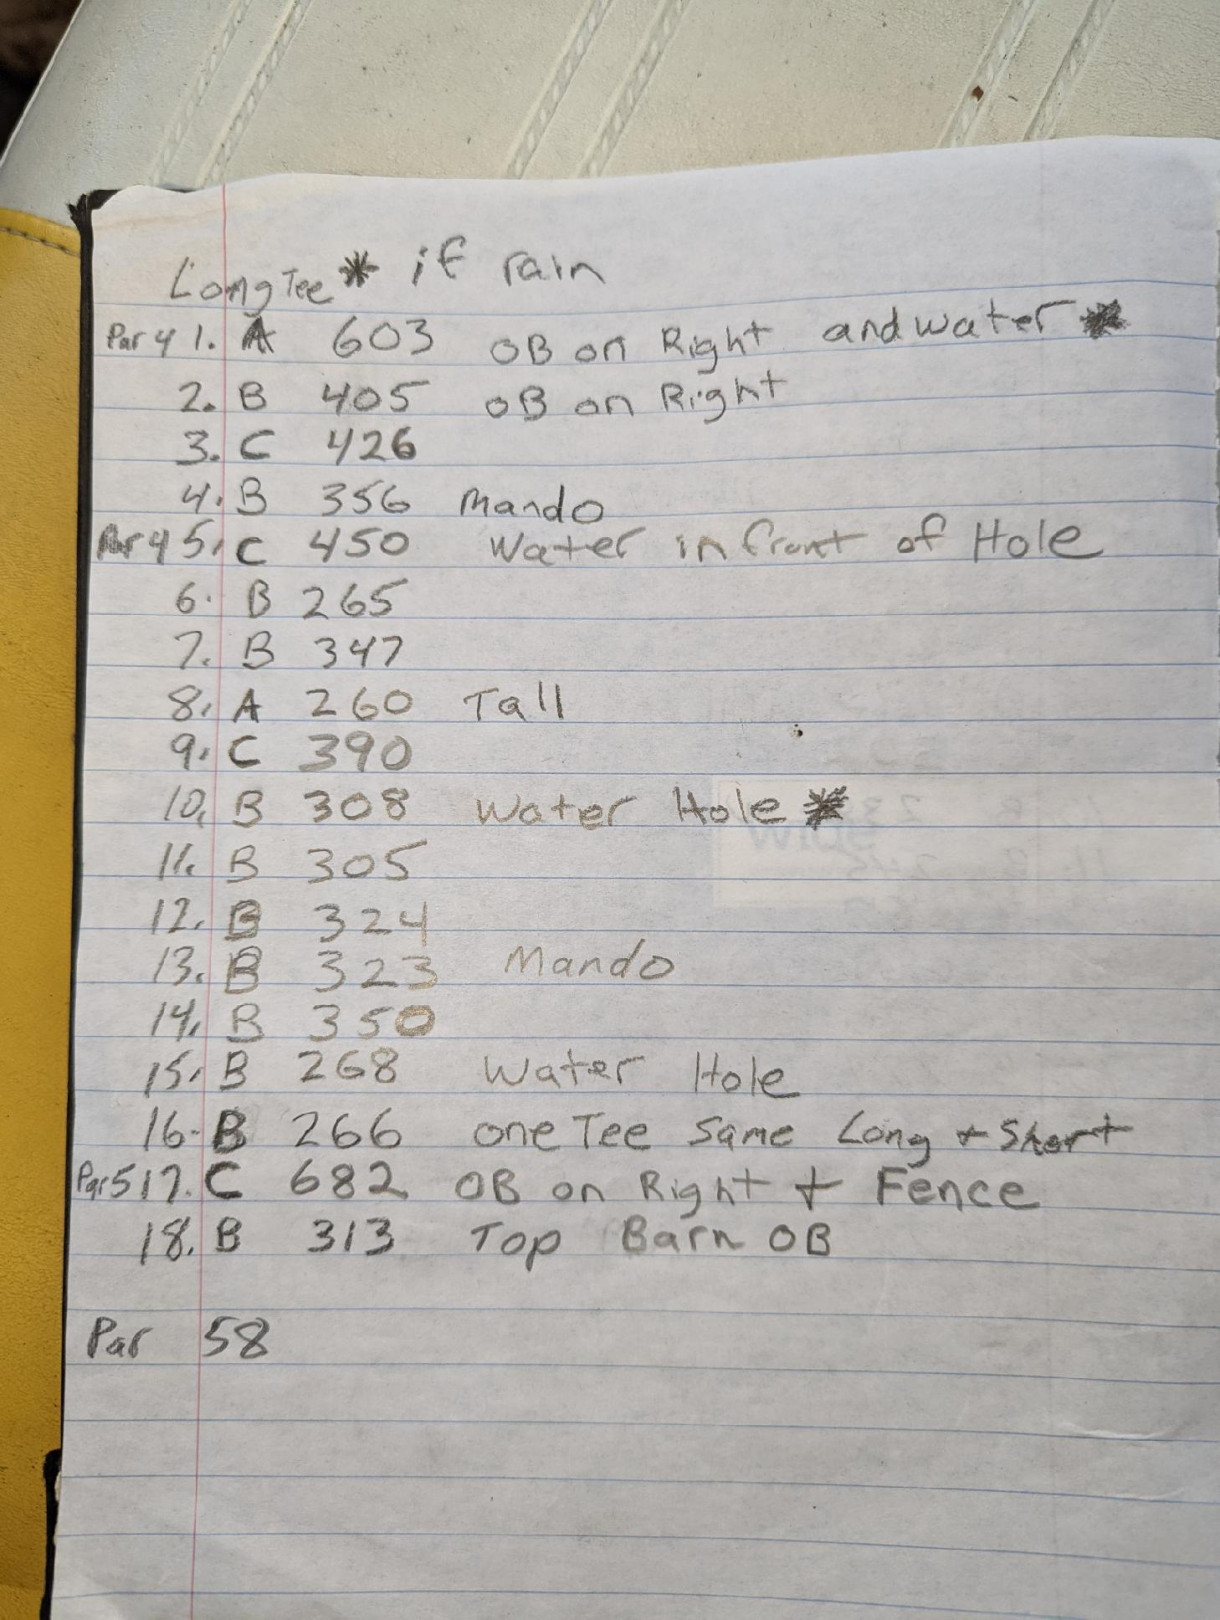 Long Tee * if rain
Par 4 1. A 603 OB on Right and water *
2. B 405 OB on Right
3. C 426
4. B 356 Mando
Par 4 5. C 450 Water in front of Hole
6. B 265
7. B 347
8. A 260 Tall
9. C 390
10. B 308 Water Hole *
11. B 305
12. B 324
13. B 323 Mando
14. B 350
15. B 268 Water Hole
16. B 266 one Tee Same Long + Short
Par 5 17. C 682 OB on Right + Fence
18. B 313 Top Barn OB
Par 58